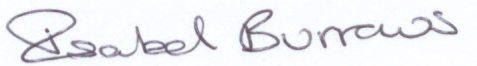 Isabel Burrows